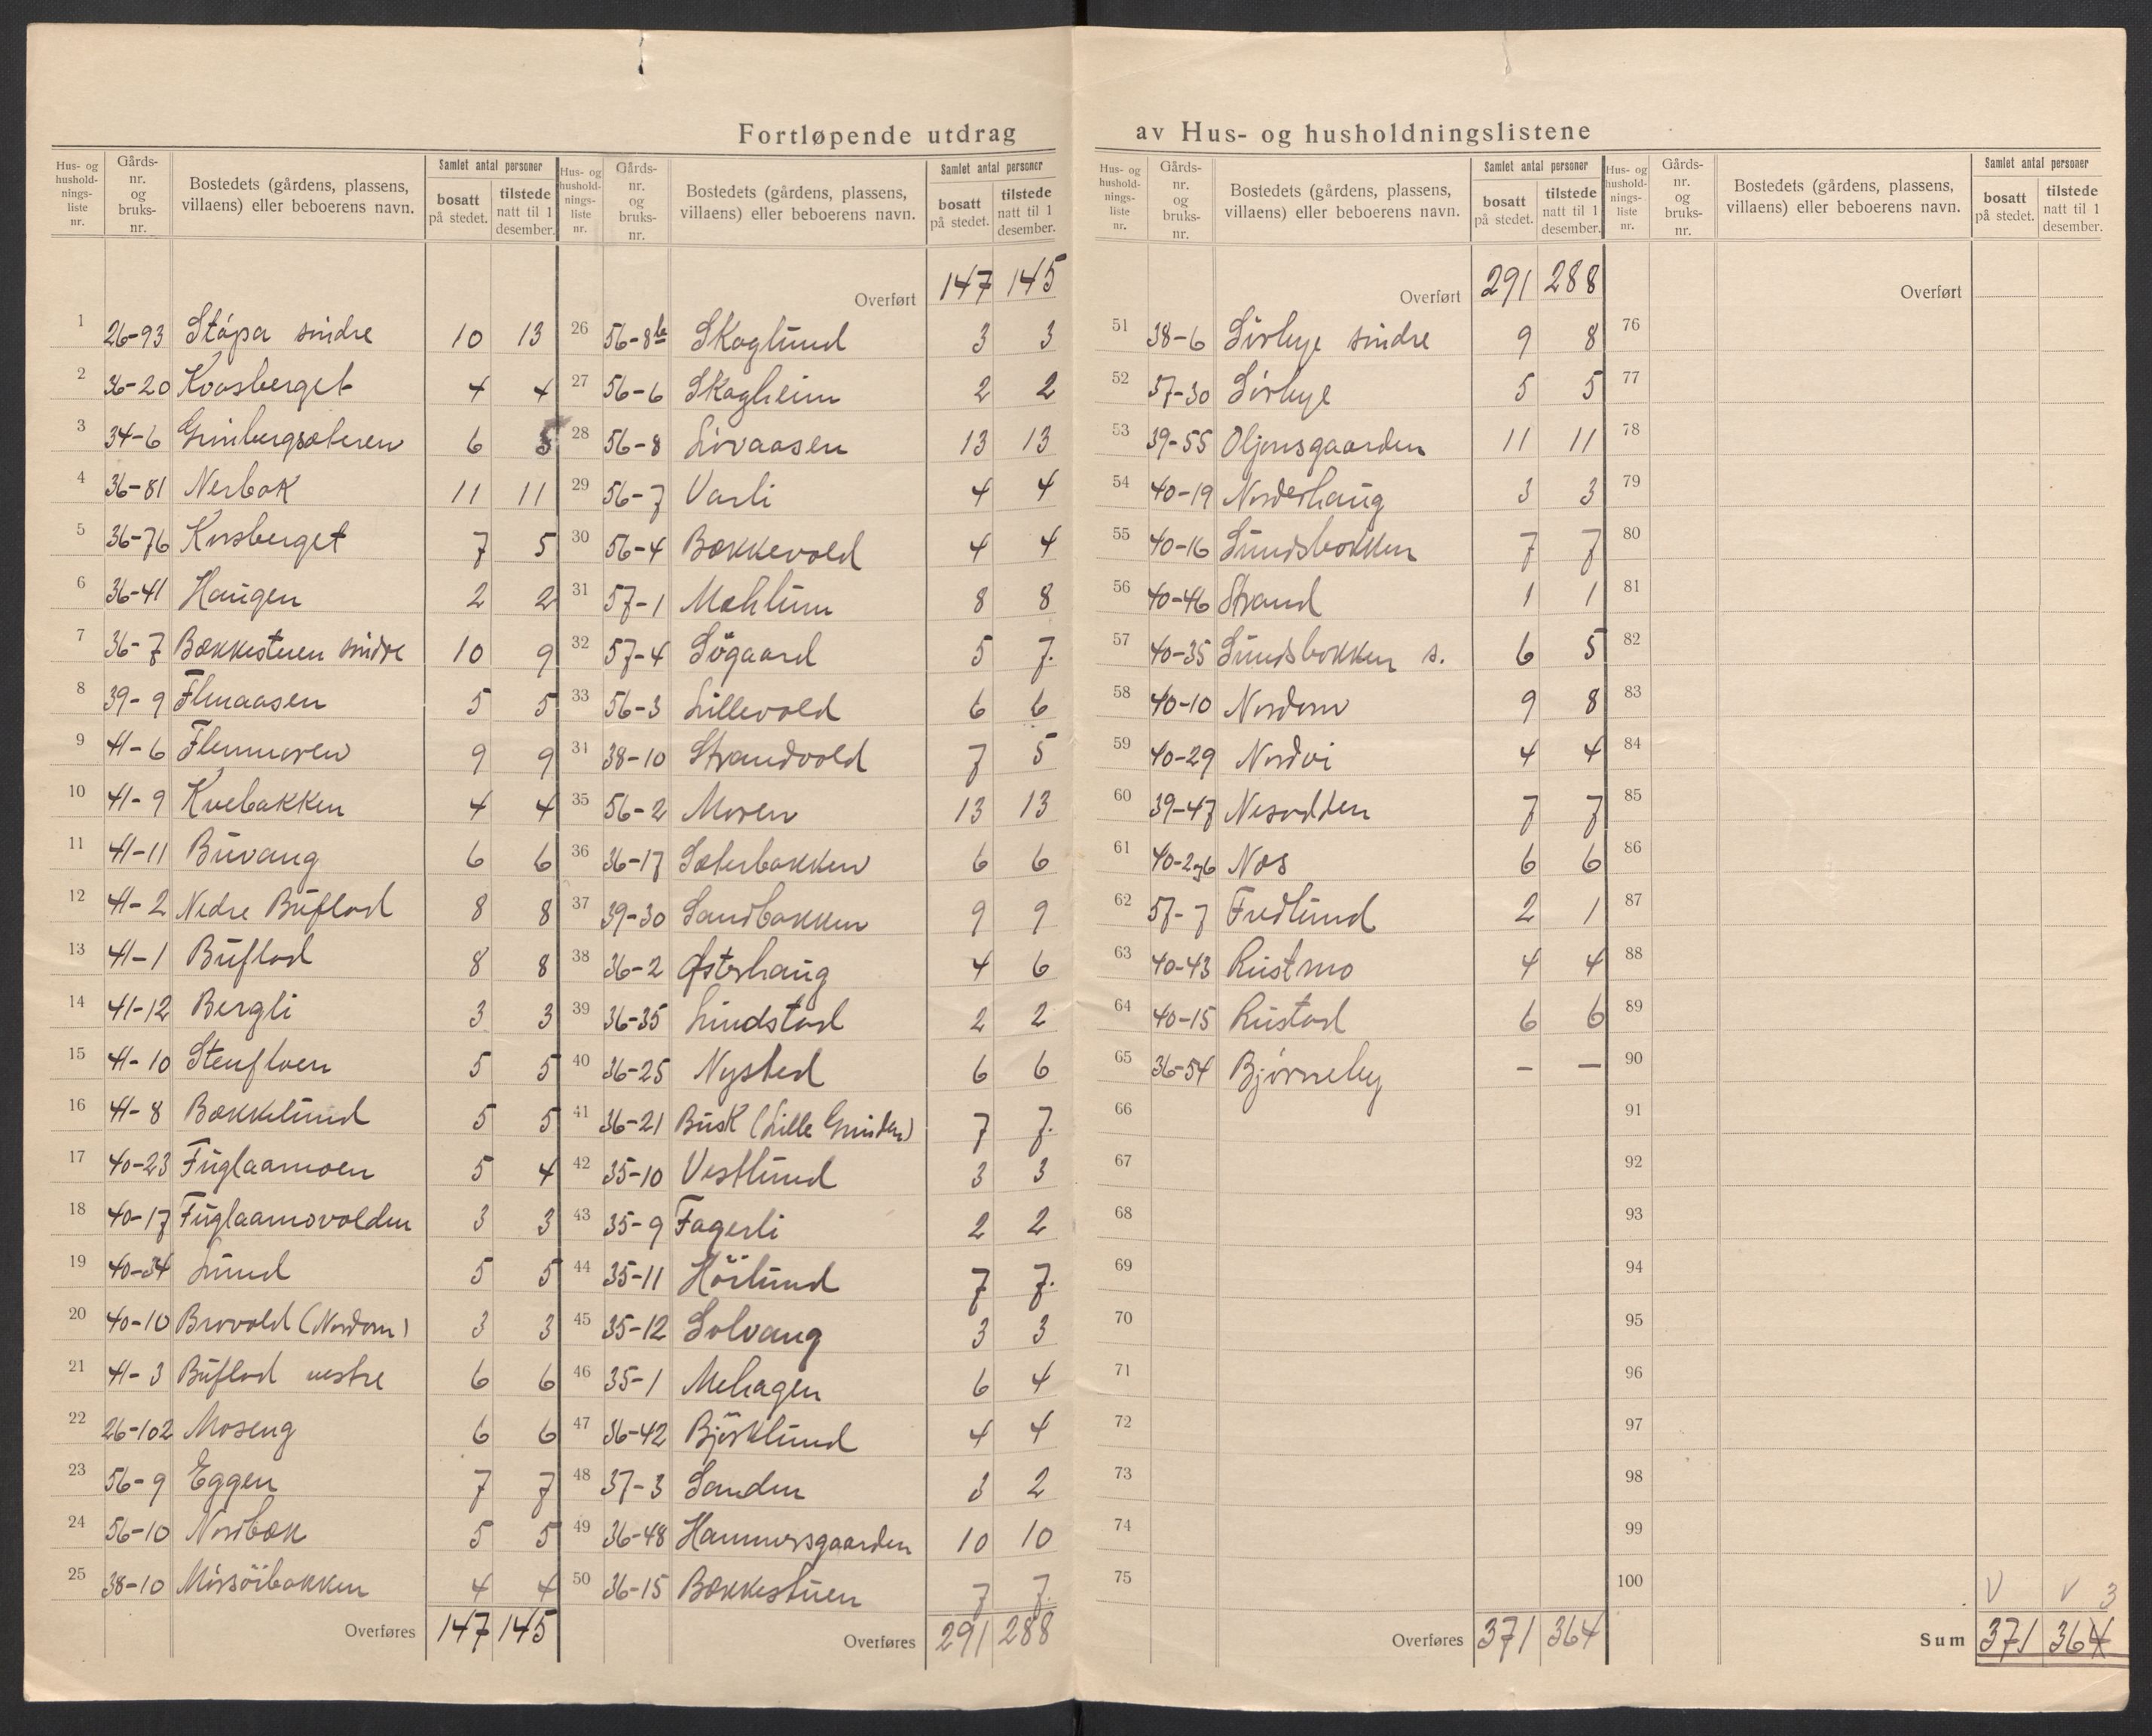 Fortløpende utdrag av Hus- og husholdningslistene
Hus- og hushold-nings-liste nr. Gårds-nr. og bruks-nr. Bostedets (gårdens, plassens, villaens) eller beboerens navn. Samlet antal personer bosatt på stedet. tilstede natt til 1 desember.
1 26-93 Stópa sindre 10 13
2 36-20 Kvasberget 4 4
3 34-6 6 5
4 36-81 Nerbæk 11 11
5 36-76 Korsberget 7 5
6 36-41 Haugen 2 2
7 36-7 Bækkestuen sindre 10 9
8 39-9 Flenaasen 5 5
9 41-6 Flenmoren 9 9
10 41-9 Kvebakken 4 4
11 41-11 Buvang 6 6
12 41-2 Nedre Buflod 8 8
13 41-1 Buflod 8 8
14 41-12 Bergli 3 3
15 41-10 Stenfloen 5 5
16 41-8 Bækkelund 5 5
17 40-23 Fuglaamoen 5 4
18 40-17 Fuglaamovolden 3 3
19 40-34 Lund 5 5
20 40-10 Brovold (Nordom) 3 3
21 41-3 Buflod vestre 6 6
22 26-102 Moseng 6 6
23 56-9 Eggen 7 7
24 56-10 Nordbæk 5 5
25 38-10 Missöibakken 4 4
Overføres 147 145
Hus- og hushold-nings-liste nr. Gårds-nr. og bruks-nr. Bostedets (gårdens, plassens, villaens) eller beboerens navn. Samlet antal personer bosatt på stedet. tilstede natt til 1 desember.
Overført 147 145
26 56-8b Skoglund 3 3
27 56-6 Skogheim 2 2
28 56-8 Lövaasen 13 13
29 56-7 Varli 4 4
30 56-4 Bækkevold 4 4
31 57-1 Mæhlum 8 8
32 57-4 Sögaard 5 7.
33 56-3 Lillevold 6 6
34 38-10 Strandvold 7 5
35 56-2 Moren 13 13
36 36-17 Sæterbakken 6 6
37 39-30 Sandbakken 9 9
38 36-2 Østerhaug 4 6
39 36-35 Lundstad 2 2
40 36-25 Nysted 6 6
41 36-21 Busk (Lille Grinden) 7 7.
42 35-10 Vestlund 3 3
43 35-9 Fagerli 2 2
44 35-11 Höilund 7 7.
45 35-12 Solvang 3 3
46 35-1 Mehagen 6 4
47 36-42 Björklund 4 4
48 37-3 Sanden 3 2
49 36-48 Hammersgaarden 10 10
50 36-15 Bækkestuen 7 7.
Overføres 291 288
Hus- og hushold-nings-liste nr. Gårds-nr. og bruks-nr. Bostedets (gårdens, plassens, villaens) eller beboerens navn. Samlet antal personer bosatt på stedet. tilstede natt til 1 desember.
Overført 291 288
51 38-6 Sörhye sindre 9 8
52 57-30 Sörhye 5 5
53 39-55 Oljonsgaarden 11 11
54 40-19 Norderhaug 3 3
55 40-16 Sundsbakken 7 7
56 40-46 Strand 1 1
57 40-35 Sundsbakken s. 6 5
58 40-10 Nordom 9 8
59 40-29 Nordvi 4 4
60 39-47 Nesodden 7 7
61 40-2og6 Næs 6 6
62 57-7 Fredlund 2 1
63 40-43 Rustmo 4 4
64 40-15 Rustad 6 6
65 36-54 Bjørneby – –
66
67
68
69
70
71
72
73
74
75
Overføres 371 364
Hus- og hushold-nings-liste nr. Gårds-nr. og bruks-nr. Bostedets (gårdens, plassens, villaens) eller beboerens navn. Samlet antal personer bosatt på stedet. tilstede natt til 1 desember.
Overført
76
77
78
79
80
81
82
83
84
85
86
87
88
89
90
91
92
93
94
95
96
97
98
99
100
V V 3
Sum 371 364